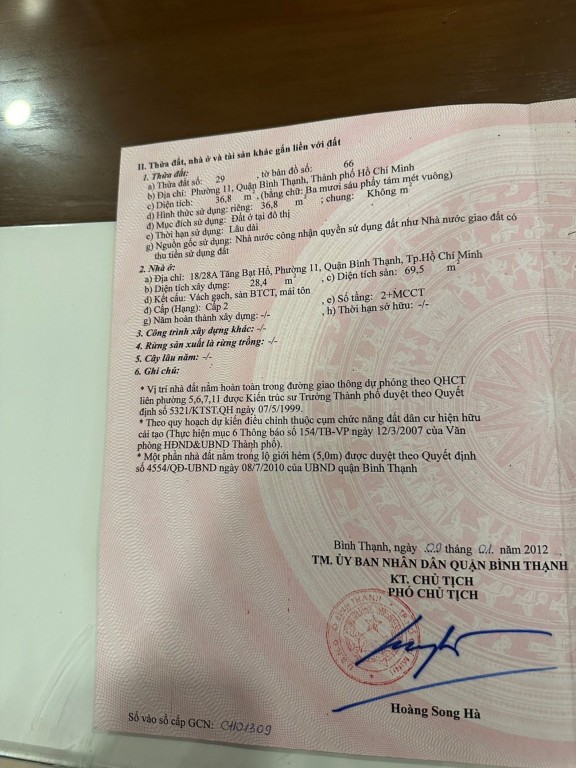 II. Thửa đất, nhà ở và tài sản khác gắn liền với đất
1. Thửa đất:
a) Thửa đất số: 29 , tờ bản đồ số: 66
b) Địa chỉ: Phường 11, Quận Bình Thạnh, Thành phố Hồ Chí Minh
c) Diện tích: 36,8 m², (bằng chữ: Ba mươi sáu phẩy tám mét vuông)
d) Hình thức sử dụng: riêng: 36,8 m² ; chung: Không m²
đ) Mục đích sử dụng: Đất ở tại đô thị
e) Thời hạn sử dụng: Lâu dài
g) Nguồn gốc sử dụng: Nhà nước công nhận quyền sử dụng đất như Nhà nước giao đất có
thu tiền sử dụng đất
2. Nhà ở:
a) Địa chỉ: 18/28A Tăng Bạt Hổ, Phường 11, Quận Bình Thạnh, Tp.Hồ Chí Minh
b) Diện tích xây dựng: 28,4 m² , c) Diện tích sàn: 69,5 m²
d) Kết cấu: Vách gạch, sàn BTCT, mái tôn
đ) Cấp (Hạng): Cấp 2 , e) Số tầng: 2+MCCT
g) Năm hoàn thành xây dựng: -/- , h) Thời hạn sở hữu: -/-
3. Công trình xây dựng khác: -/-
4. Rừng sản xuất là rừng trồng: -/-
5. Cây lâu năm: -/-
6. Ghi chú:
* Vị trí nhà đất nằm hoàn toàn trong đường giao thông dự phóng theo QHCT
liên phường 5,6,7,11 được Kiến trúc sư Trưởng Thành phố duyệt theo Quyết
định số 5321/KTST.QH ngày 07/5/1999.
* Theo quy hoạch dự kiến điều chỉnh thuộc cụm chức năng đất dân cư hiện hữu
cải tạo (Thực hiện mục 6 Thông báo số 154/TB-VP ngày 12/3/2007 của Văn
phòng HĐND&UBND Thành phố).
* Một phần nhà đất nằm trong lộ giới hẻm (5,0m) được duyệt theo Quyết định
số 4554/QĐ-UBND ngày 08/7/2010 của UBND quận Bình Thạnh
Bình Thạnh, ngày 09 tháng 01 năm 2012
TM. ỦY BAN NHÂN DÂN QUẬN BÌNH THẠNH
KT. CHỦ TỊCH
PHÓ CHỦ TỊCH
Hoàng Song Hà
Số vào sổ cấp GCN: CH01309